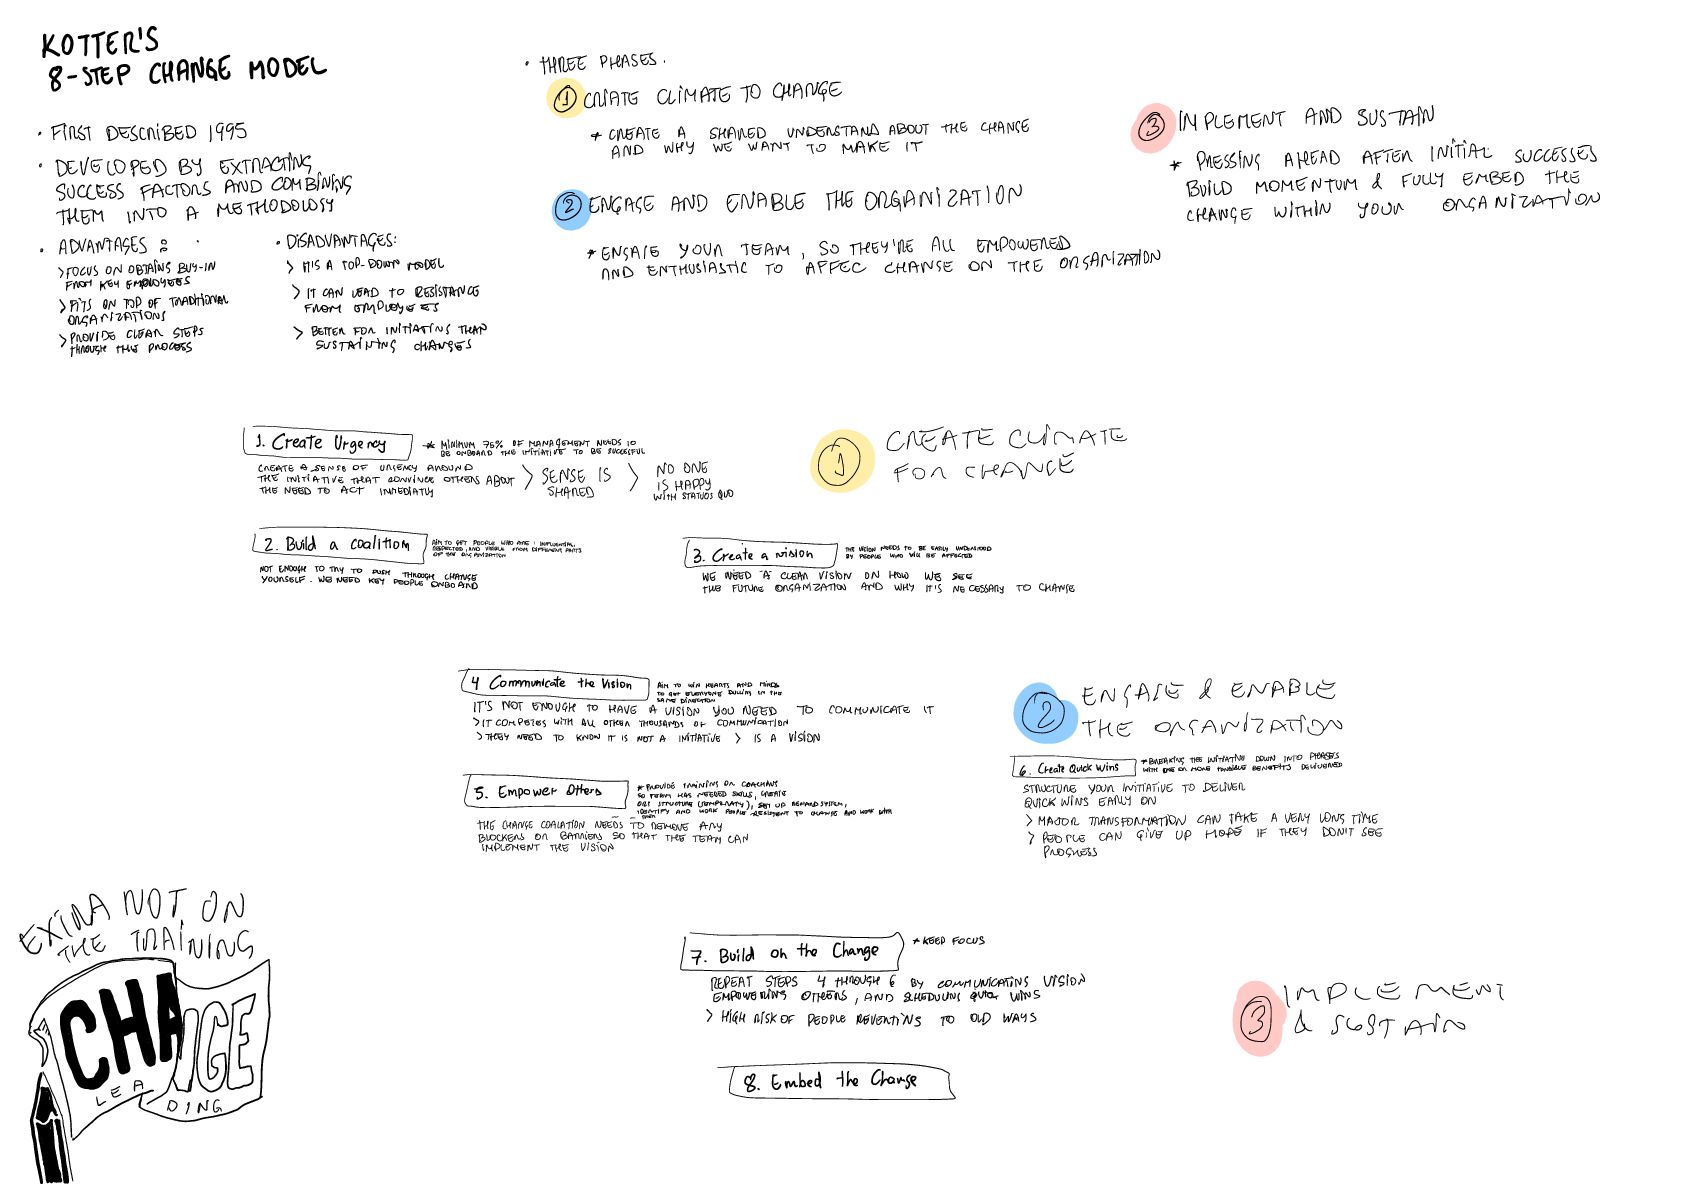 KOTTER'S
8-STEP CHANGE MODEL
• FIRST DESCRIBED 1995
• DEVELOPED BY EXTRACTING
SUCCESS FACTORS AND COMBINING
THEM INTO A METHODOLOGY
• ADVANTAGES:
> FOCUS ON OBTAINS BUY-IN
FROM KEY EMPLOYEES
> FITS ON TOP OF TRADITIONAL
ORGANIZATIONS
> PROVIDE CLEAR STEPS
THROUGH THE PROCESS
• DISADVANTAGES:
> IT IS A TOP-DOWN MODEL
> IT CAN LEAD TO RESISTANCE
FROM EMPLOYEES
> BETTER FOR INITIATING THAN
SUSTAINING CHANGES
• THREE PHASES.
1 CREATE CLIMATE TO CHANGE
* CREATE A SHARED UNDERSTAND ABOUT THE CHANGE
AND WHY WE WANT TO MAKE IT
2 ENGAGE AND ENABLE THE ORGANIZATION
* ENGAGE YOUR TEAM, SO THEY'RE ALL EMPOWERED
AND ENTHUSIASTIC TO AFFEC CHANGE ON THE ORGANIZATION
3 IMPLEMENT AND SUSTAIN
* PRESSING AHEAD AFTER INITIAL SUCCESSES
BUILD MOMENTUM & FULLY EMBED THE
CHANGE WITHIN YOUR ORGANIZATION
1 CREATE CLIMATE
FOR CHANGE
1. Create Urgency
* MINIMUM 75% OF MANAGEMENT NEEDS TO
BE ONBOARD THE INITIATIVE TO BE SUCCESFUL
CREATE A SENSE OF URGENCY AROUND
THE INITIATIVE THAT CONVINCE OTHERS ABOUT
THE NEED TO ACT
> SENSE IS
SHARED
> NO ONE
IS HAPPY
WITH STATUOS QUO
2. Build a coalition
AIM TO GET PEOPLE WHO ARE: INFLUENTIAL,
RESPECTED, AND VISIBLE FROM DIFFERENT PARTS
OF THE ORGANIZATION
NOT ENOUGH TO TRY TO PUSH THROUGH CHANGE
YOURSELF. WE NEED KEY PEOPLE ONBOARD
3. Create a vision
THE VISION NEEDS TO BE EASILY UNDERSTOOD
BY PEOPLE WHO WILL BE AFFECTED
WE NEED A CLEAR VISION ON HOW WE SEE
THE FUTURE ORGANIZATION AND WHY IT'S NECESSARY TO CHANGE
2 ENGAGE & ENABLE
THE ORGANIZATION
4 Communicate the Vision
AIM TO WIN HEARTS AND MINDS
TO GET EVERYONE PULLING IN THE
SAME DIRECTION
IT'S NOT ENOUGH TO HAVE A VISION YOU NEED TO COMMUNICATE IT
> IT COMPETES WITH ALL OTHER THOUSANDS OF COMMUNICATION
> THEY NEED TO KNOW IT IS NOT A INITIATIVE > IS A VISION
5. Empower Others
* PROVIDE TRAINING OR COACHING
SO TEAM HAS NEEDED SKILLS, CREATE
ORG STRUCTURE (TEMPORARY), SET UP REWARD SYSTEM,
IDENTIFY AND WORK PEOPLE RESISTENT TO CHANGE AND WORK WITH
THEM
THE CHANGE COALATION NEEDS TO REMOVE ANY
BLOCKERS OR BARRIERS SO THAT THE TEAM CAN
IMPLEMENT THE VISION
6. Create Quick Wins
* BREAKING THE INITIATIVE DOWN INTO PHASES
WITH ONE OR MORE TANGIBLE BENEFITS DELIVERED
STRUCTURE YOUR INITIATIVE TO DELIVER
QUICK WINS EARLY ON
> MAJOR TRANSFORMATION CAN TAKE A VERY LONG TIME
> PEOPLE CAN GIVE UP HOPE IF THEY DON'T SEE
PROGRESS
3 IMPLEMENT
& SUSTAIN
7. Build on the Change
* KEEP FOCUS
REPEAT STEPS 4 THROUGH 6 BY COMMUNICATING VISION
EMPOWERING OTHERS, AND SHEDULING QUICK WINS
> HIGH RISK OF PEOPLE REVERTING TO OLD WAYS
8. Embed the Change
EXTRA NOT ON
THE TRAINING
CHANGE
LEADING